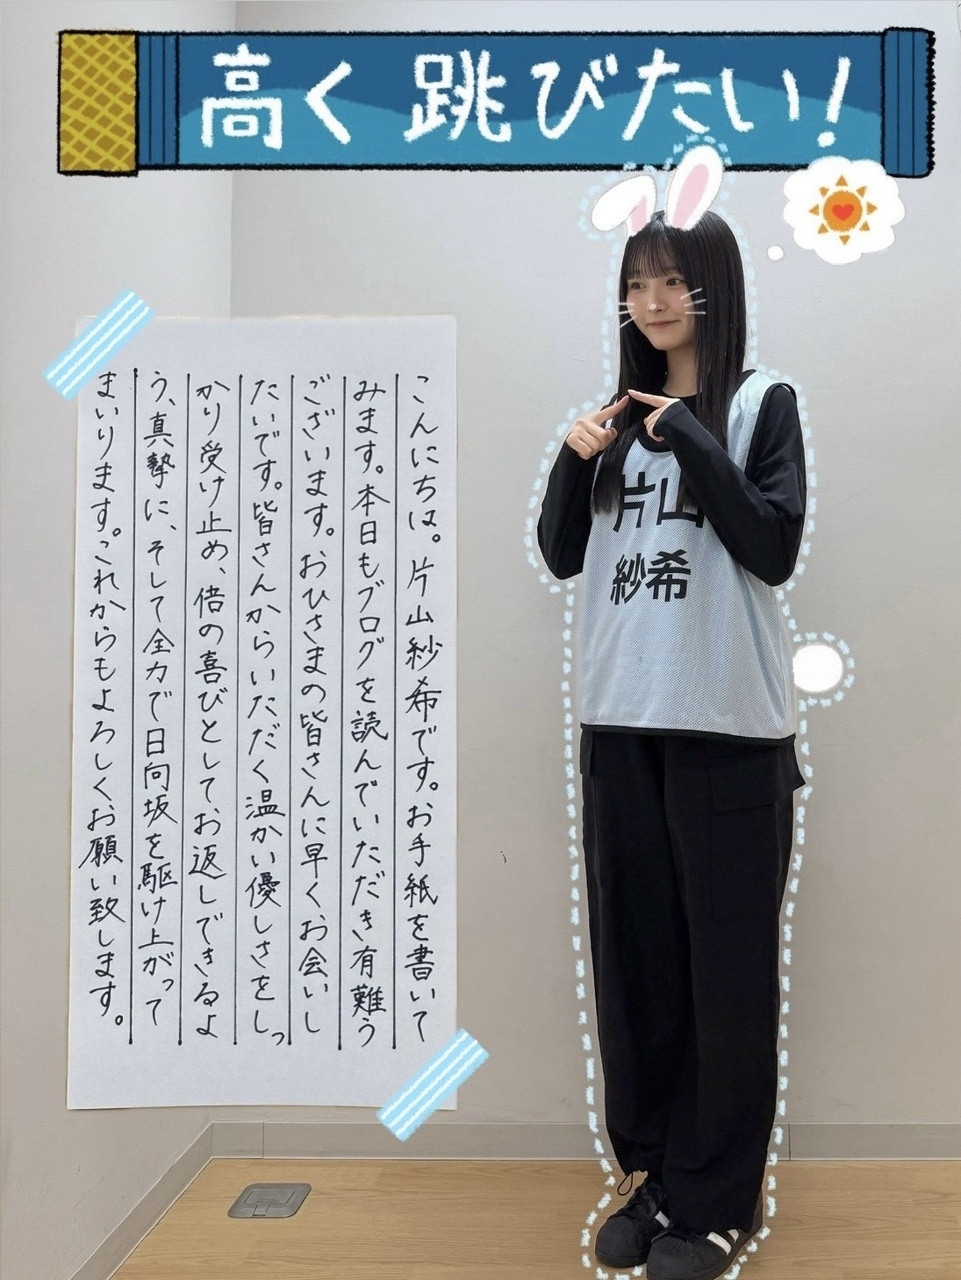 高く跳びたい!
こんにちは。片山紗希です。お手紙を書いて
みます。本日もブログを読んでいただき有難う
ございます。おひさまの皆さんに早くお会いし
たいです。皆さんからいただく温かい優しさをしっ
かり受け止め、倍の喜びとしてお返しできるよ
う、真摯に、そして全力で日向坂を駆け上がって
まいります。これからもよろしくお願い致します。
片山
紗希